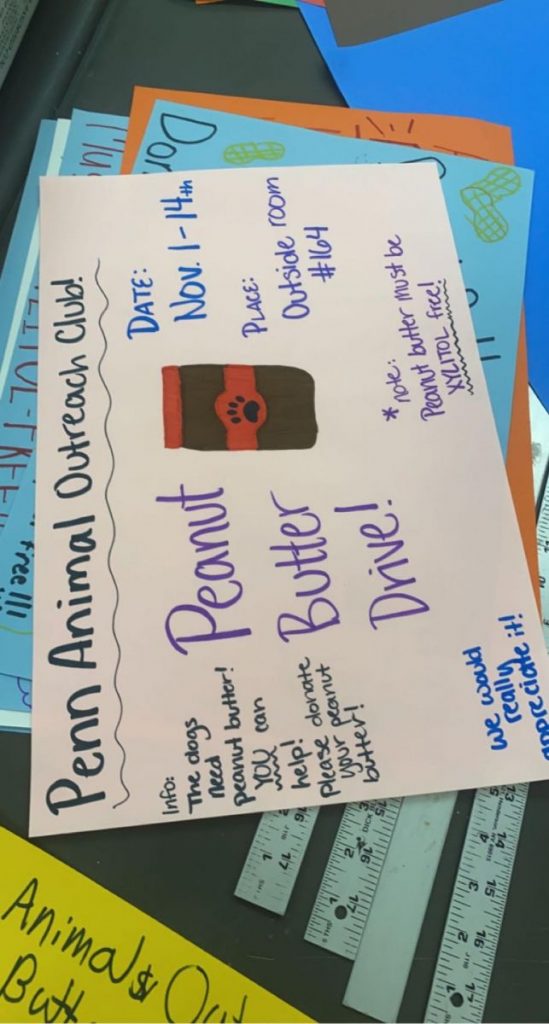 Penn Animal Outreach Club!
Info:
The dogs
need
peanut butter!
YOU can
help!
please donate
your peanut
butter!
Peanut
Butter
Drive!
DATE:
Nov. 1-14th
PLACE:
Outside room
#164
*note:
Peanut butter must be
XYLITOL free!
we would
really
appreciate it!
free!!!
Animals Out
Butt